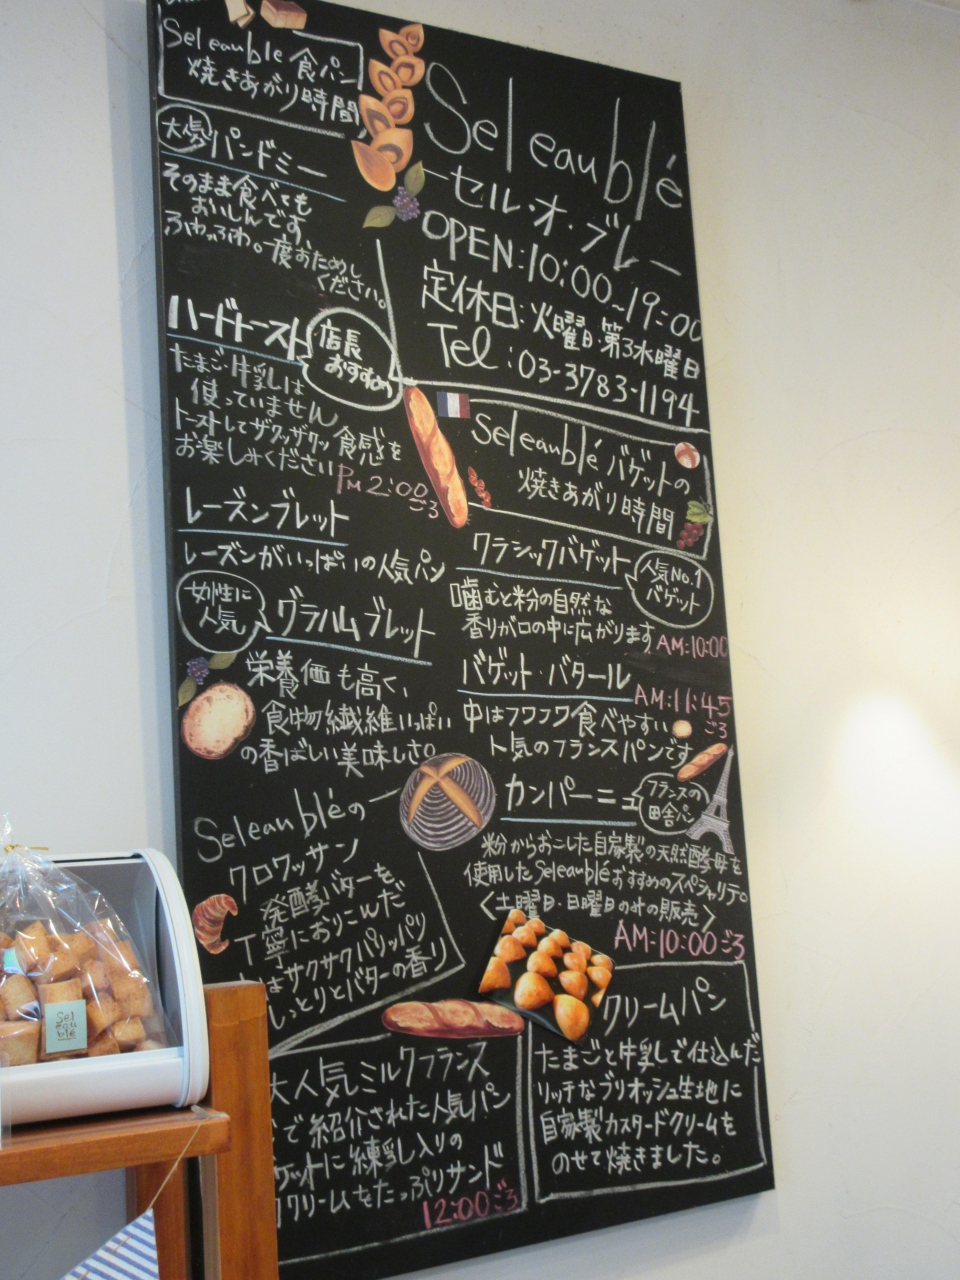 Seleaublé
セル・オ・ブレー
OPEN:10:00~19:00
定休日:火曜日・第3水曜日
Tel:03-3783-1194
Seleauble 食パン
焼きあがり時間
大人気
パンドミー
そのまま食べても
おいしいんです。
ふわっふわ。一度おためし
ください。
ハードトースト
店長
おすすめ
たまご・牛乳は
使っていません
トーストしてザクッザクッ食感を
お楽しみください
PM2:00
ごろ
レーズンブレット
レーズンがいっぱいの人気パン
女性に
人気
グラハムブレット
栄養価も高く、
食物繊維いっぱい
の香ばしい美味しさ。
Seleaubléの
クロワッサン
発酵バターを
丁寧におりこんだ
サクサクパリッパリ
しっとりとバターの香り
大人気ミルクフランス
で紹介された人気パン
ゲットに練乳入りの
クリームをたっぷりサンド
12:00ごろ
Seleaublé バゲットの
焼きあがり時間
クラシックバゲット
人気No.1
バゲット
噛むと粉の自然な
香りが口の中に広がります
AM:10:00
バゲット・バタール
AM:11:45
ごろ
中はフワフワ食べやすい
人気のフランスパンです
カンパーニュ
フランスの
田舎パン
粉からおこした自家製の天然酵母を
使用したSeleaubléおすすめのスペシャリテ。
〈土曜日・日曜日のみの販売〉
AM:10:00ごろ
クリームパン
たまごと牛乳で仕込んだ
リッチなブリオッシュ生地に
自家製カスタードクリームを
のせて焼きました。
Sel
eau
blé